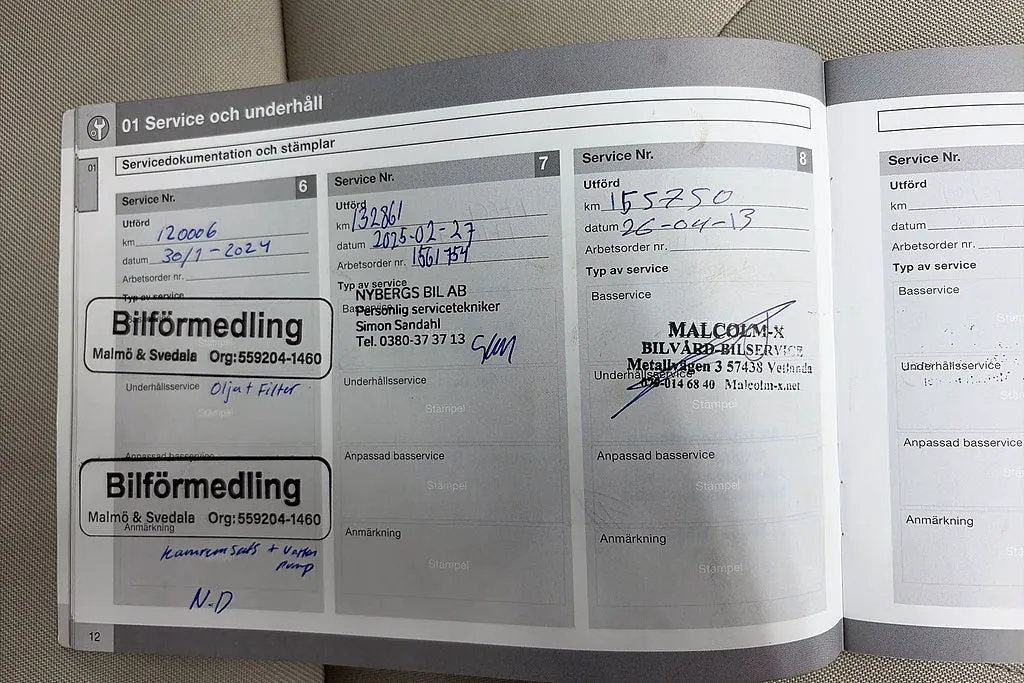 01 Service och underhåll
01
Servicedokumentation och stämplar
Service Nr. 6
Utförd
km 120006
datum 30/1-2024
Arbetsorder nr.
Typ av service
Bilförmedling
Malmö & Svedala Org:559204-1460
Underhållsservice Olja + Filter
Stämpel
Anpassad basservice
Bilförmedling
Malmö & Svedala Org:559204-1460
Anmärkning
Kamremsats + Vatten
pump
N-D
12
Service Nr. 7
Utförd
km 132861
datum 2025-02-27
Arbetsorder nr. 1561754
Typ av service
NYBERGS BIL AB
Personlig servicetekniker
Simon Sandahl
Tel. 0380-37 37 13
Underhållsservice
Stämpel
Anpassad basservice
Stämpel
Anmärkning
Stämpel
Service Nr. 8
Utförd
km 155750
datum 26-04-13
Arbetsorder nr.
Typ av service
Basservice
MALCOLM-X
BILVÅRD-BILSERVICE
Metallvägen 3 57438 Vetlanda
Underhållsservice
014 68 40 Malcolm-x.net
Stämpel
Anpassad basservice
Stämpel
Anmärkning
Stämpel
Service Nr.
Utförd
km
datum
Arbetsorder nr.
Typ av service
Basservice
Underhållsservice
Anpassad basservice
Anmärkning